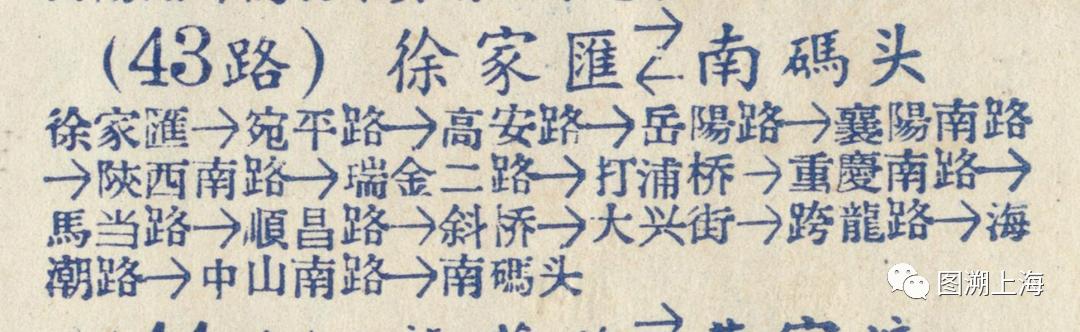 (43路) 徐家匯⇄南碼头
徐家匯→宛平路→高安路→岳陽路→襄陽南路
→陝西南路→瑞金二路→打浦桥→重慶南路→
馬当路→順昌路→斜桥→大兴街→跨龍路→海
潮路→中山南路→南碼头
图溯上海